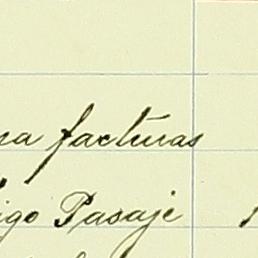 na facturas
igo Pasaje